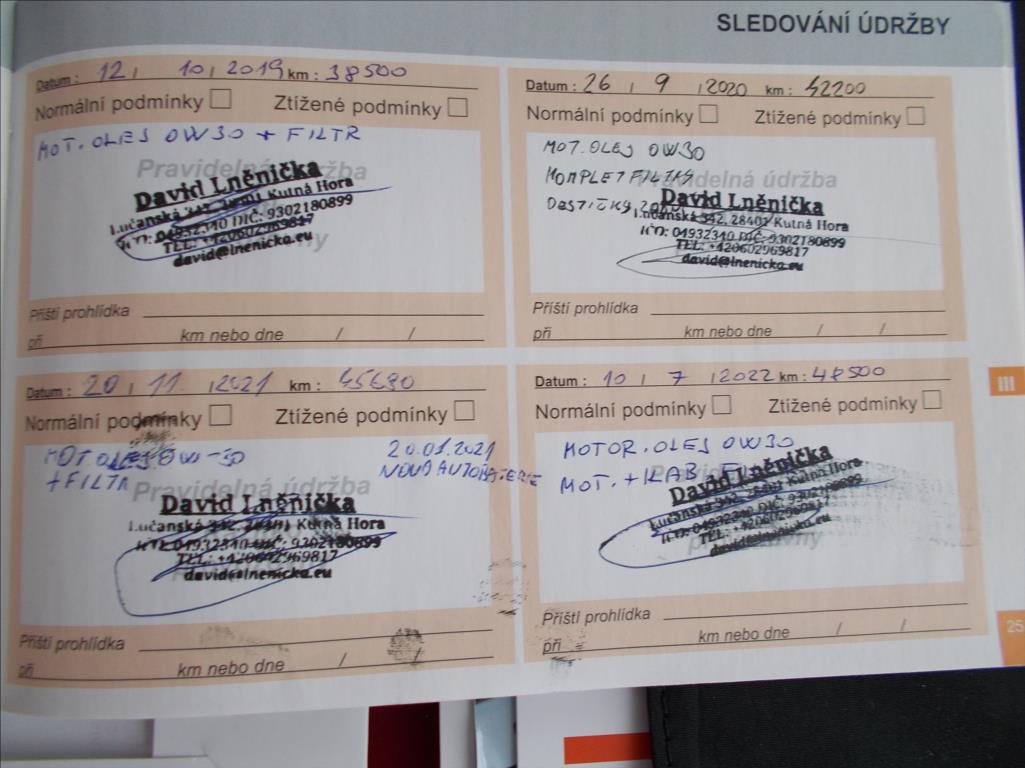 SLEDOVÁNÍ ÚDRŽBY
Datum : 12 / 10 / 2019 km : 38500
Normální podmínky Ztížené podmínky
MOT. OLEJ 0W30 + FILTR
Pravidelná údržba
David Lněnička
Lučanská 342, 28401 Kutná Hora
IČO: 04932340 DIČ: 9302180899
TEL: +420602969817
david@lnenicka.eu
Příští prohlídka
při km nebo dne / /
Datum : 26 / 9 / 2020 km : 42200
Normální podmínky Ztížené podmínky
MOT. OLEJ 0W30
KOMPLET FILTRY
Pravidelná údržba
DESTIČKY
David Lněnička
Lučanská 342, 28401 Kutná Hora
IČO: 04932340 DIČ: 9302180899
TEL: +420602969817
david@lnenicka.eu
Příští prohlídka
při km nebo dne / /
Datum : 20 / 11 / 2021 km : 45680
Normální podmínky Ztížené podmínky
MOT. OLEJ 0W-30 20.01.2021
+ FILTR NOVÁ AUTOBATERIE
Pravidelná údržba
David Lněnička
Lučanská 342, 28401 Kutná Hora
IČO: 04932340 DIČ: 9302180899
TEL: +420602969817
david@lnenicka.eu
Příští prohlídka
při km nebo dne / /
Datum : 10 / 7 / 2022 km : 48500
Normální podmínky Ztížené podmínky
MOTOR. OLEJ 0W30
MOT. + KAB
David Lněnička
Lučanská 342, 28401 Kutná Hora
IČO: 04932340 DIČ: 9302180899
TEL: +420602969817
david@lnenicka.eu
Příští prohlídka
při km nebo dne / /
III
25